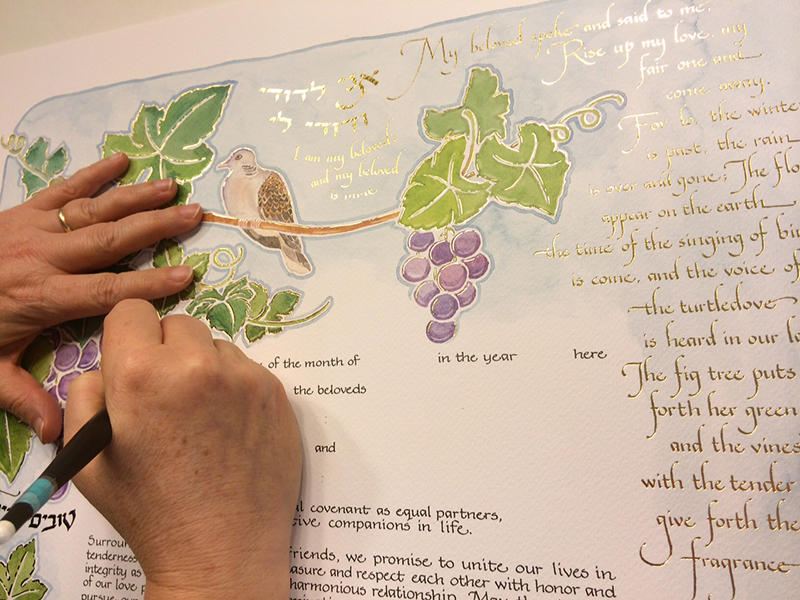 My beloved spoke and said to me,
Rise up my love, my
fair one and
come away.
For lo, the winter
is past, the rain
is over and gone; The flo
appear on the earth
the time of the singing of bir
is come, and the voice of
the turtledove
is heard in our la
The fig tree puts
forth her green
and the vines
with the tender
give forth the
fragrance
אני לדודי
ודודי לי
I am my beloved's
and my beloved
is mine
of the month of in the year here
the beloveds
and
covenant as equal partners,
companions in life.
טובים
Surroun
friends, we promise to unite our lives in
tenderness
and respect each other with honor and
integrity as
harmonious relationship. May
of our love